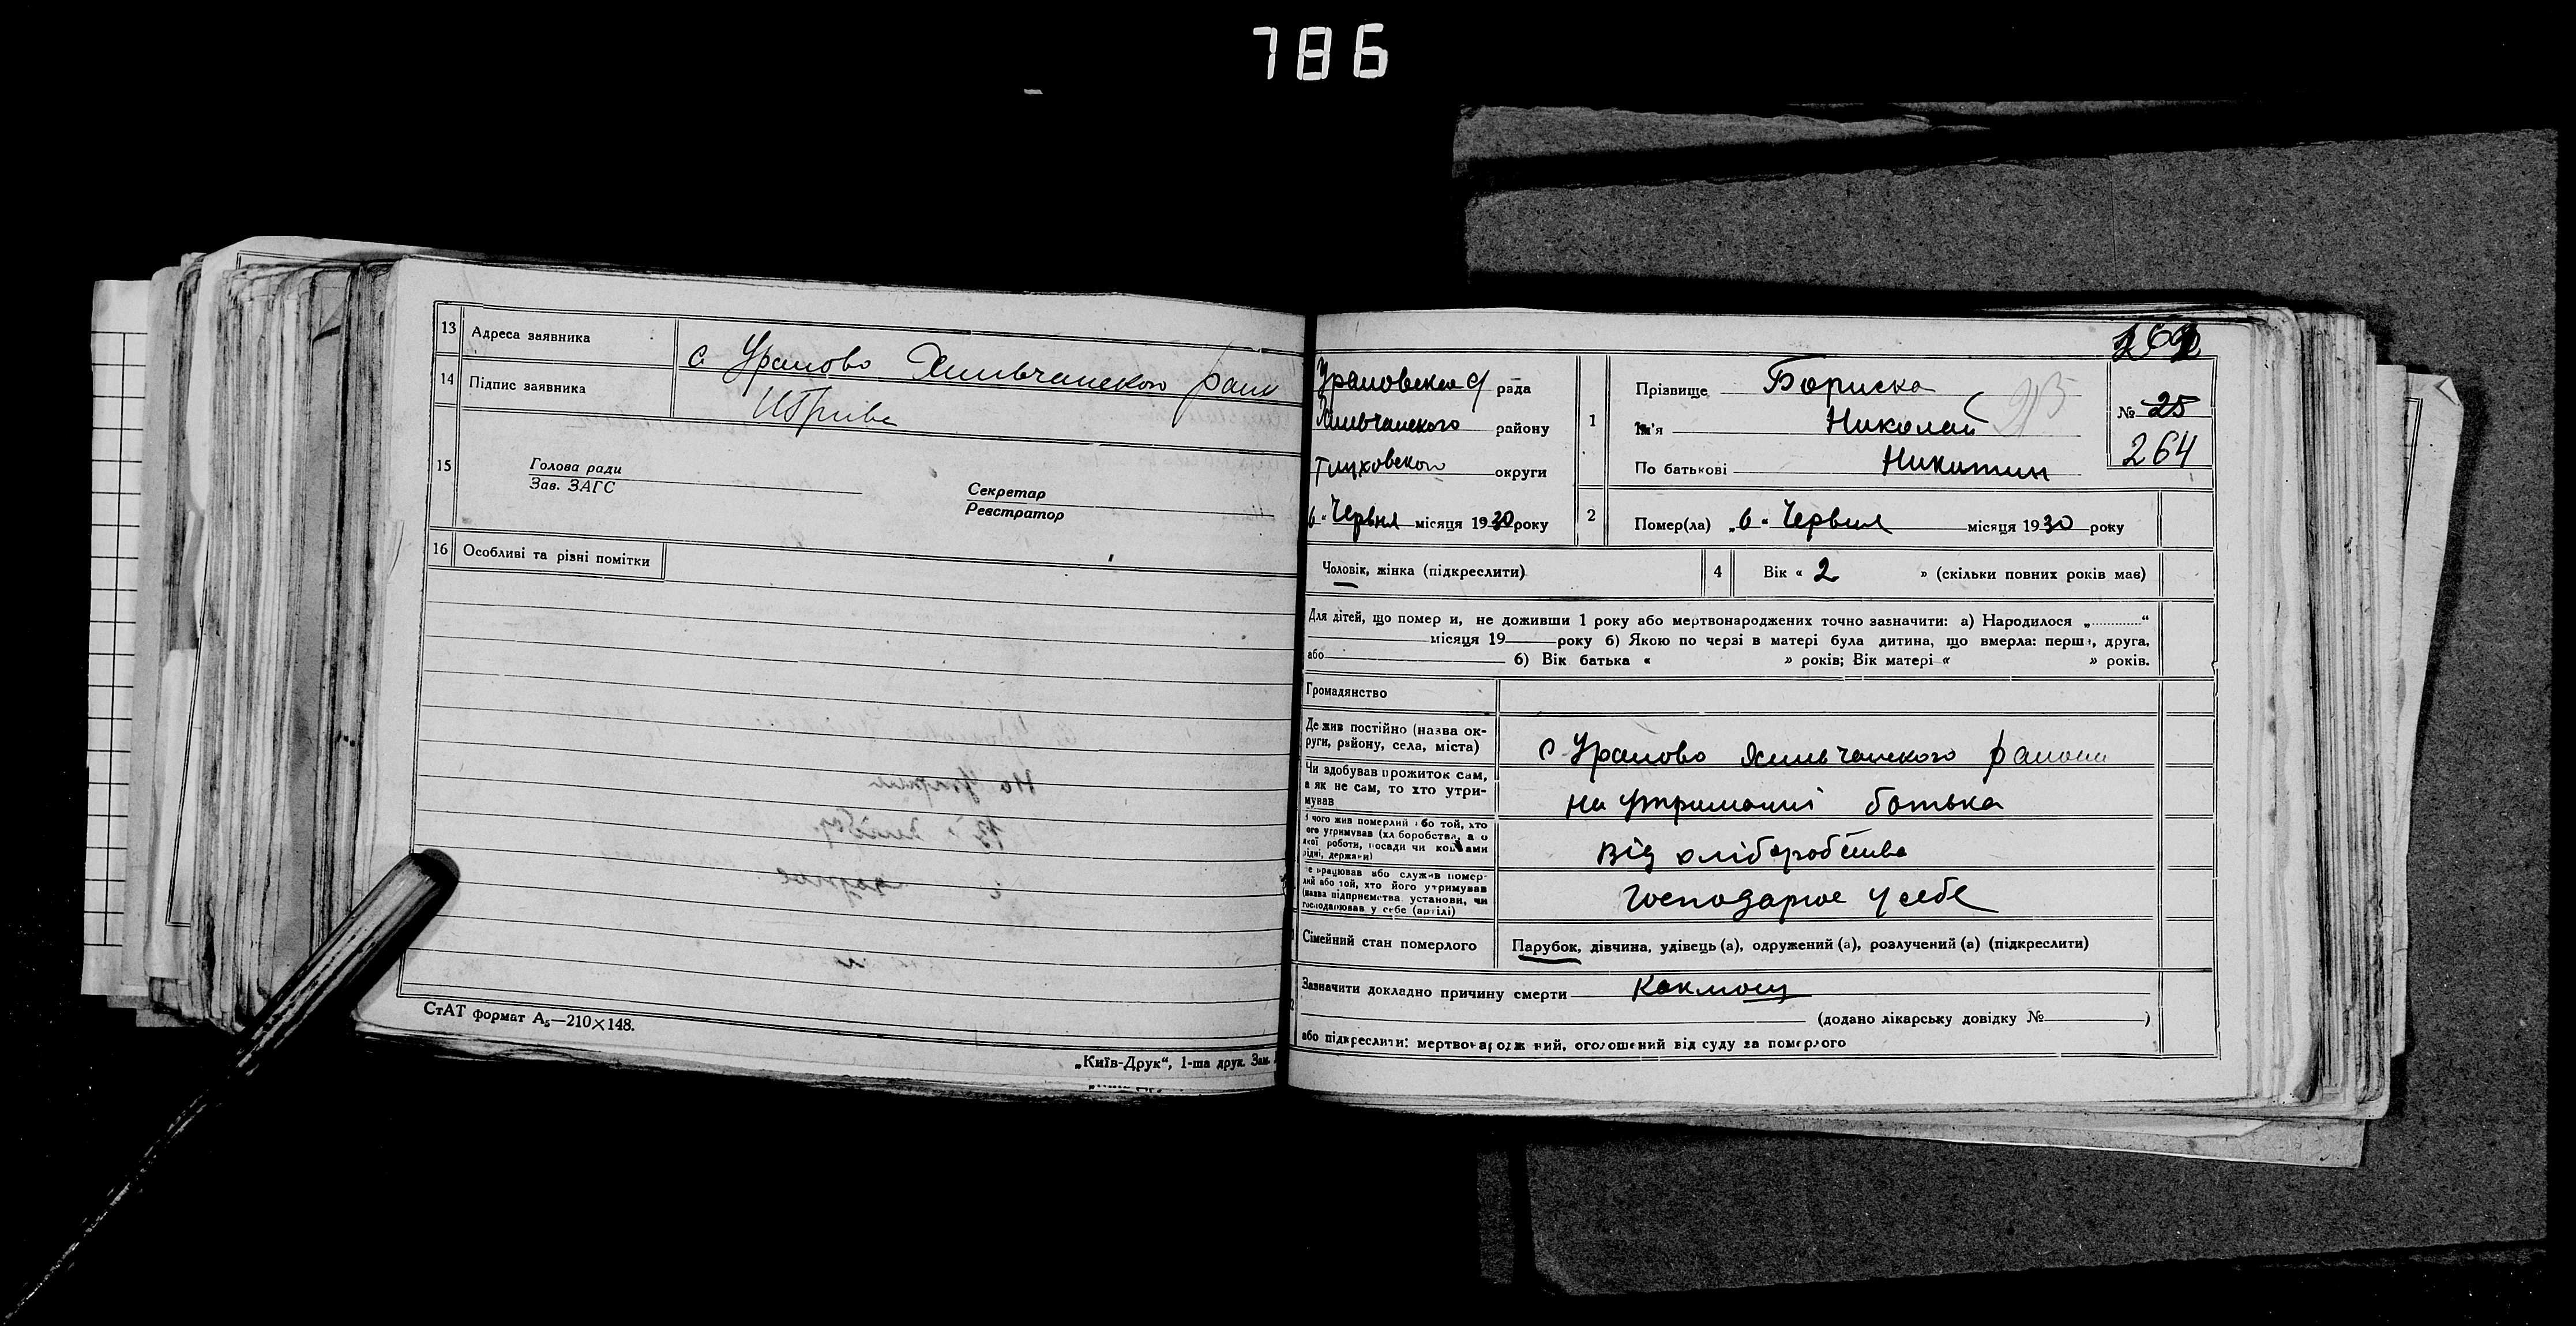 786
13 Адреса заявника с Уралово Хильчанского райо
14 Підпис заявника
15 Голова ради
Зав. ЗАГС
Секретар
Реєстратор
16 Особливі та різні помітки
СтАТ формат А₅—210×148.
„Київ-Друк“, 1-ша друк. Зам.
Ураловская с/ рада
Хильчанского району
Глуховского округи
6 „ Червня місяця 1930 року
1 Прізвище Бориска
Ім'я Николай
По батькові Никитин
№ 25
264
2 Помер(ла) „6“ Червня місяця 1930 року
Чоловік, жінка (підкреслити)
4 Вік « 2 » (скільки повних років має)
Для дітей, що помер и, не доживши 1 року або мертвонароджених точно зазначити: а) Народилося „............“
місяця 19 року б) Якою по черзі в матері була дитина, що вмерла: перша, друга,
або б) Вік батька « » років; Вік матері « » років.
Громадянство
Де жив постійно (назва ок-
руги, району, села, міста) с Уралово Хильчанского района
Чи здобував прожиток сам,
а як не сам, то хто утри-
мував на утриманні батька
з чого жив померлий або той, хто
його утримував (хліборобства, а о
якої роботи, посади чи коштами
рідні, держави) від хліборобства
де працював або служив помер-
лий або той, хто його утримував
(назва підприємства установи, чи
господарював у себе (артілі) господарює у себе
Сімейний стан померлого Парубок, дівчина, удівець (а), одружений (а), розлучений (а) (підкреслити)
Зазначити докладно причину смерти Коклюш
(додано лікарську довідку № )
або підкреслити: мертвонароджений, оголошений від суду за померлого